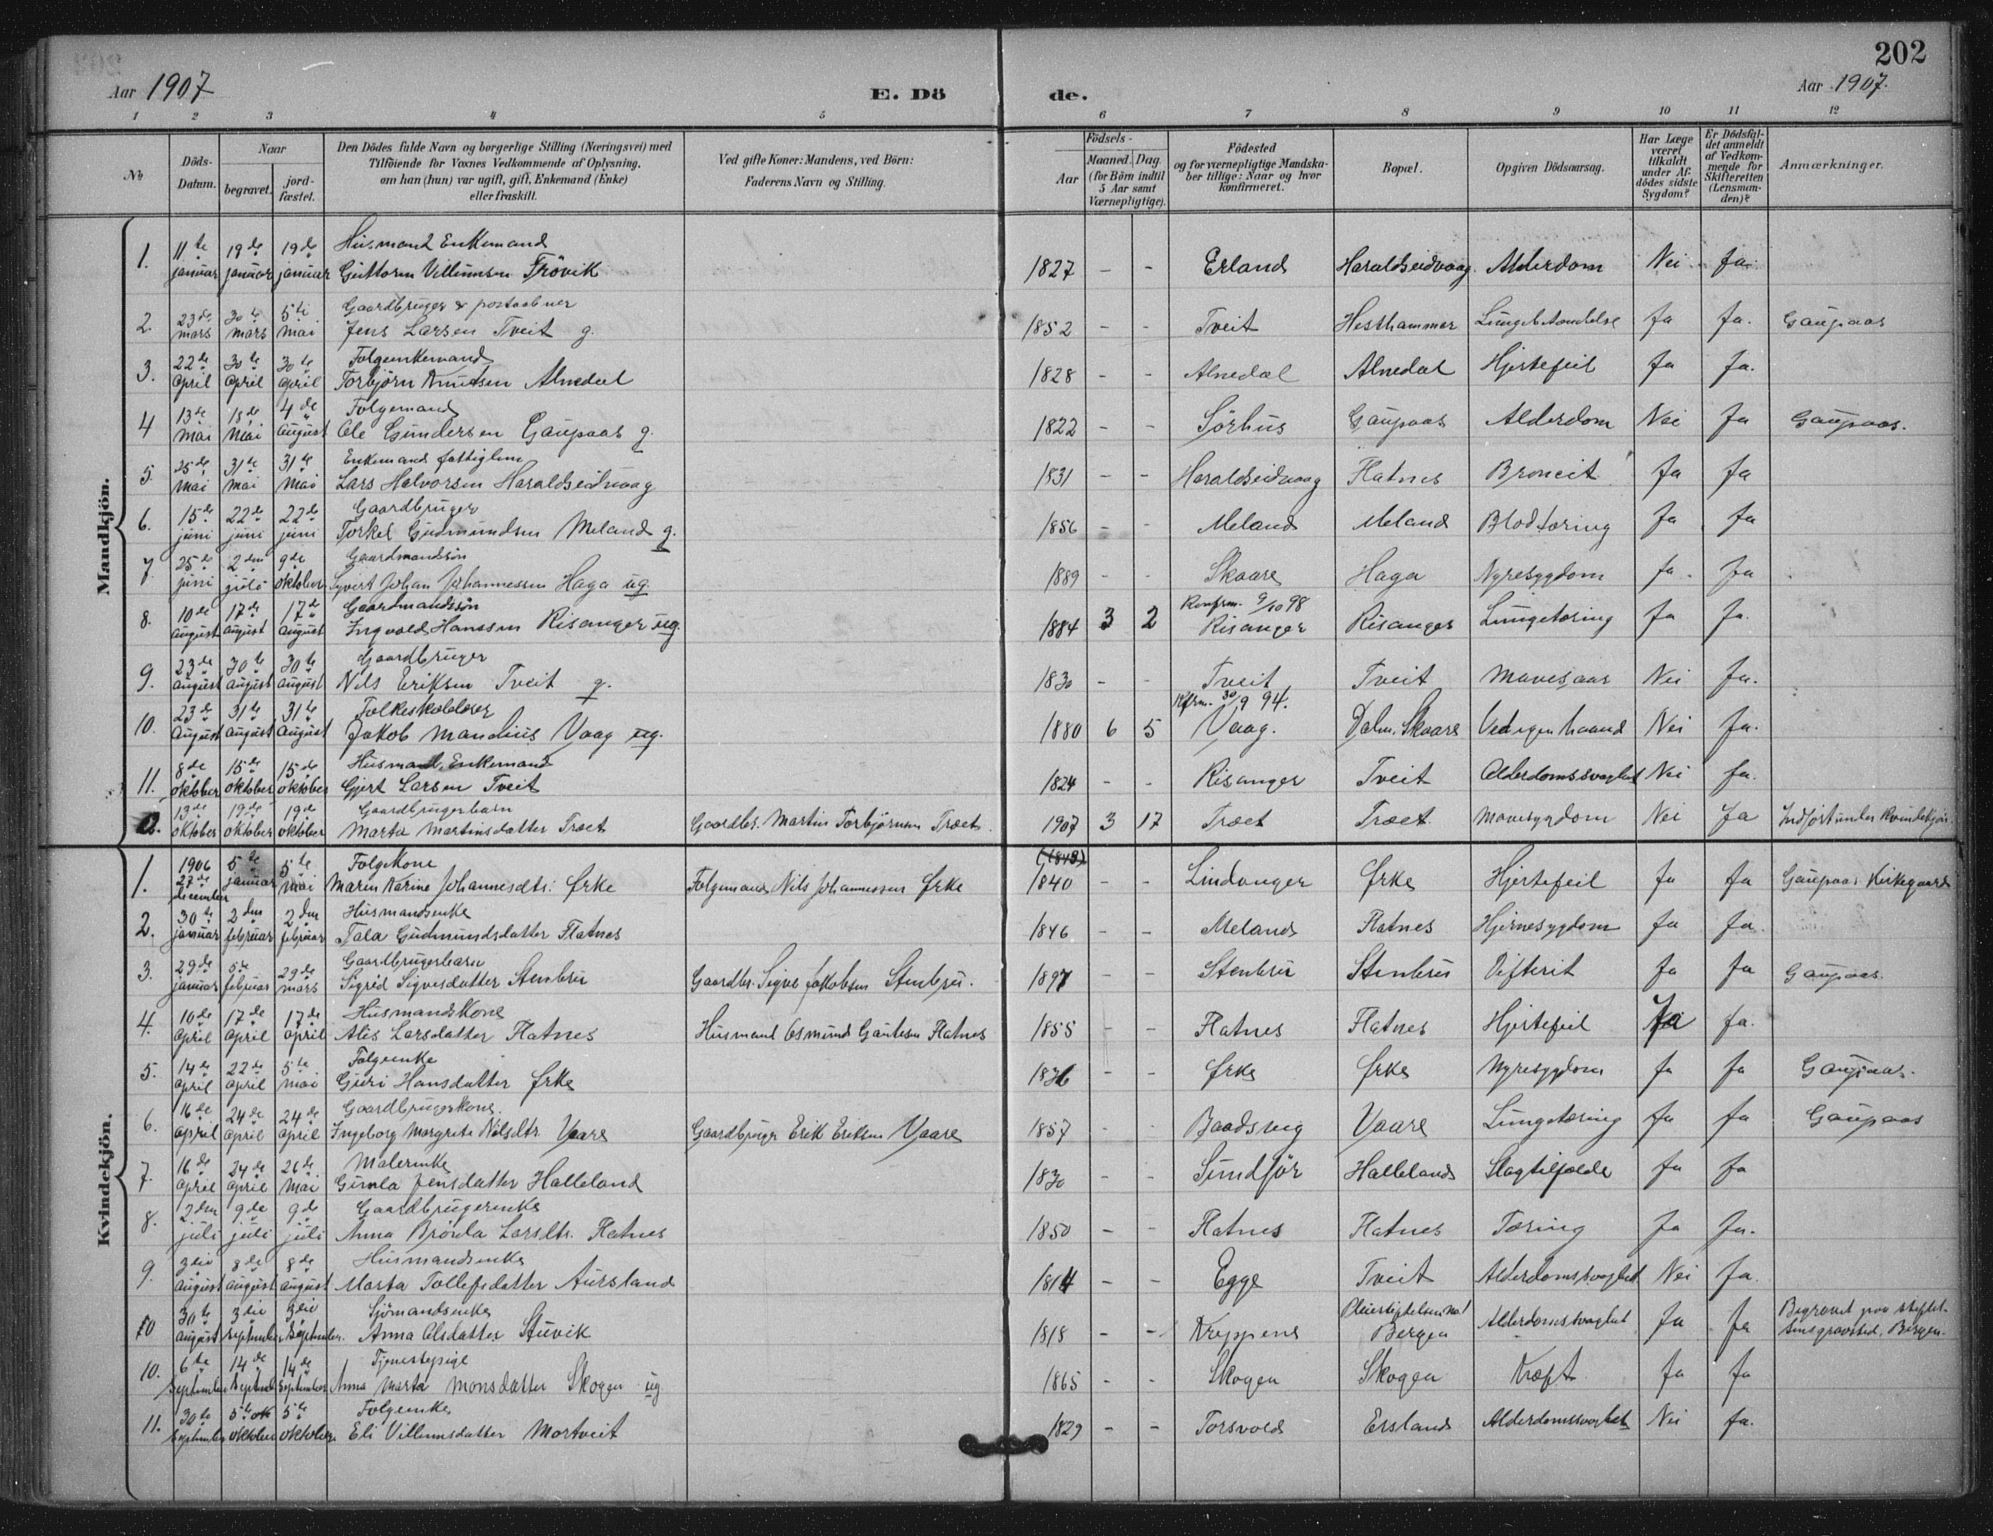 202
Aar 1907
E. Dö
de.
Aar 1907.
1 2 3 4 5 6 7 8 9 10 11 12
No
Döds-Datum.
Naar
begravet.
jord-fæstet.
Den Dödes fulde Navn og borgerlige Stilling (Næringsvei) med
Tilföiende for Voxnes Vedkommende af Oplysning,
om han (hun) var ugift, gift, Enkemand (Enke)
eller fraskilt.
Ved gifte Koner: Mandens, ved Börn:
Faderens Navn og Stilling.
Födsels-
Aar
Maaned. Dag.
(for Börn indtil
5 Aar samt
Værnepligtige).
Födested
og for værnepligtige Mandska-
ber tillige: Naar og hvor
konfirmeret.
Bopæl.
Opgiven Dödsaarsag.
Har Læge
været
tilkaldt
under Af-
dödes sidste
Sygdom?
Er Dödsfal-
det anmeldt
af Vedkom-
mende for
Skifteretten
(Lensman-
den)?
Anmærkninger.
Mandkjön.
Husmand Enkemand
1. 11te januar 19de januar 19de januar Guttorm Villumsen Trövik 1827 - - Erland Haraldseidvaag Alderdom Nei Ja
Gaardbruger & postaabner
2. 23de mars 30te mars 5te mai Jens Larsen Tveit g. 1852 - - Tveit Hesthammer Lungebetændelse Ja Ja. Gaupaas
Folgeenkemand
3. 22de april 30te april 30te april Torbjörn Knutsen Alnedal 1828 - - Alnedal Alnedal Hjertefeil Ja Ja.
Folgemand
4 13de mai 18de mai 4de august Ole Gundersen Gaupaas g. 1822 - - Sörhus Gaupaas Alderdom Nei Ja Gaupaas.
Enkemand fattiglem
5. 25de mai 31te mai 31te mai Lars Halvorsen Haraldseidvaag 1831 - - Haraldseidvaag Flatnes Ja Ja
Gaardbruger
6. 15de juni 22de juni 22de juni Torkel Gudmundsen Meland g. 1856 - - Meland Meland Blodtæring Ja Ja
Gaardmandssön
7. 25de juni 2den juli 9de oktober Syvert Johan Johannessen Haga ug. 1889 - - Skaare Haga Nyresygdom Ja Ja
Gaardmandssön Konfrm. 9/10 98
8. 10de august 17de august 17de august Ingvald Hanssen Risanger ug. 1884 3 2 Risanger Risanger Lungetæring Ja Ja.
Gaardbruger
9. 23de august 30te august 30te august Nils Eriksen Tveit g. 1830 - - Tveit Tveit Mavesaar Nei Ja.
Folkeskolelærer Kfrm. 30/9 94.
10. 23de august 31te august 31te august Jakob Mandius Vaag ug. 1880 6 5 Vaag. Dalm. Skaare Ved egen haand Nei Ja.
Husmand, Enkemand
11. 8de oktober 15de oktober 15de oktober Gjert Larsen Tveit 1824 - - Risanger Tveit Alderdomssvaghet Nei Ja.
Gaardbrugerbarn
12. 13de oktober 19de oktober 19de oktober Marta Martinsdatter Træet Gaardbr. Martin Torbjörnsen Træet. 1907 3 17 Træet Træet. Mavesygdom Nei Ja Indfört under Kvindekjön.
Kvindekjön.
1906 Folgekone (1843)
1. 27de december 5te januar 5te mai Maren Karine Johannesdtr. Örke Folgemand Nils Johannessen Örke 1840 - - Lindanger Örke Hjertefeil Ja Ja Gaupaas Kirkegaard
Husmandsenke
2. 30te januar 2den februar 2den februar Tala Gudmundsdatter Flatnes 1846 - - Meland Flatnes Hjernesygdom Ja Ja.
Gaardbrugerbarn
3. 29de januar 5te februar 29de mars Sigrid Sigvesdatter Stenbru Gaardbr. Sigve Jakobsen Stenbru. 1897 - - Stenbru Stenbru Difterit Ja Ja Gaupaas.
Husmandskone
4. 10de april 17de april 17de april Ales Larsdatter Flatnes Husmand Osmund Gautesen Flatnes 1855 - - Flatnes Flatnes Hjertefeil Ja Ja.
Folgeenke
5. 14de april 22de april 5te mai Guri Hansdatter Örke 1836 - - Örke Örke Nyresygdom Ja Ja Gaupaas.
Gaardbrugerkone.
6. 16de april 24de april 24de april Ingeborg Margrete Nilsdtr. Vaare Gaardbruger Erik Eriksen Vaare 1857 - - Baadsvig Vaare Lungetæring Ja Ja Gaupaas
Malerenke
7. 16de april 24de april 26de mai Gunla Jensdatter Halleland 1830 - - Sundför Halleland Slagtilfælde Ja Ja
Gaardbrugerenke
8. 2den juli 9de juli 9de juli Anna Larsdtr. Flatnes 1850 - - Flatnes Flatnes Tæring Ja Ja.
Husmandsenke
9. 3die august 8de august 8de august Marta Tollefsdatter Aursland 1814 - - Egge Tveit Alderdomssvaghet Nei Ja.
Sjömandsenke
10 30te august 3die september 3die september. Anna Olsdatter Stuvik 1818 - - Pleiestiftelsen No 1 Bergen Alderdomssvaghet Ja Ja Begravet paa stiftelsensgravsted, Bergen.
Tjenestepige
10. 6te september 14de september 14de september Anna Marta Monsdatter Skogen ug 1865 - - Skogen Skogen Kræft. Ja Ja
Folgeenke
11. 30te september 5te oktober 5te oktober Eli Villumsdatter Mortveit 1829 - - Torsvold Ersland Alderdomssvaghet Nei Ja.